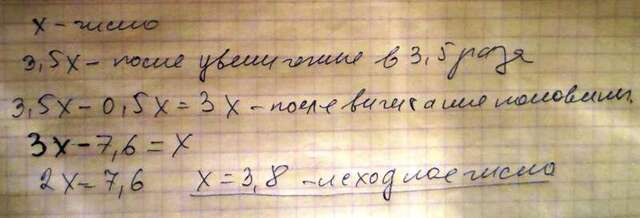 х - число
3,5х - после увеличение в 3,5 раза
3,5х - 0,5х = 3х - после вычитание половины
3х - 7,6 = х
2х = 7,6 х = 3,8 - исходное число